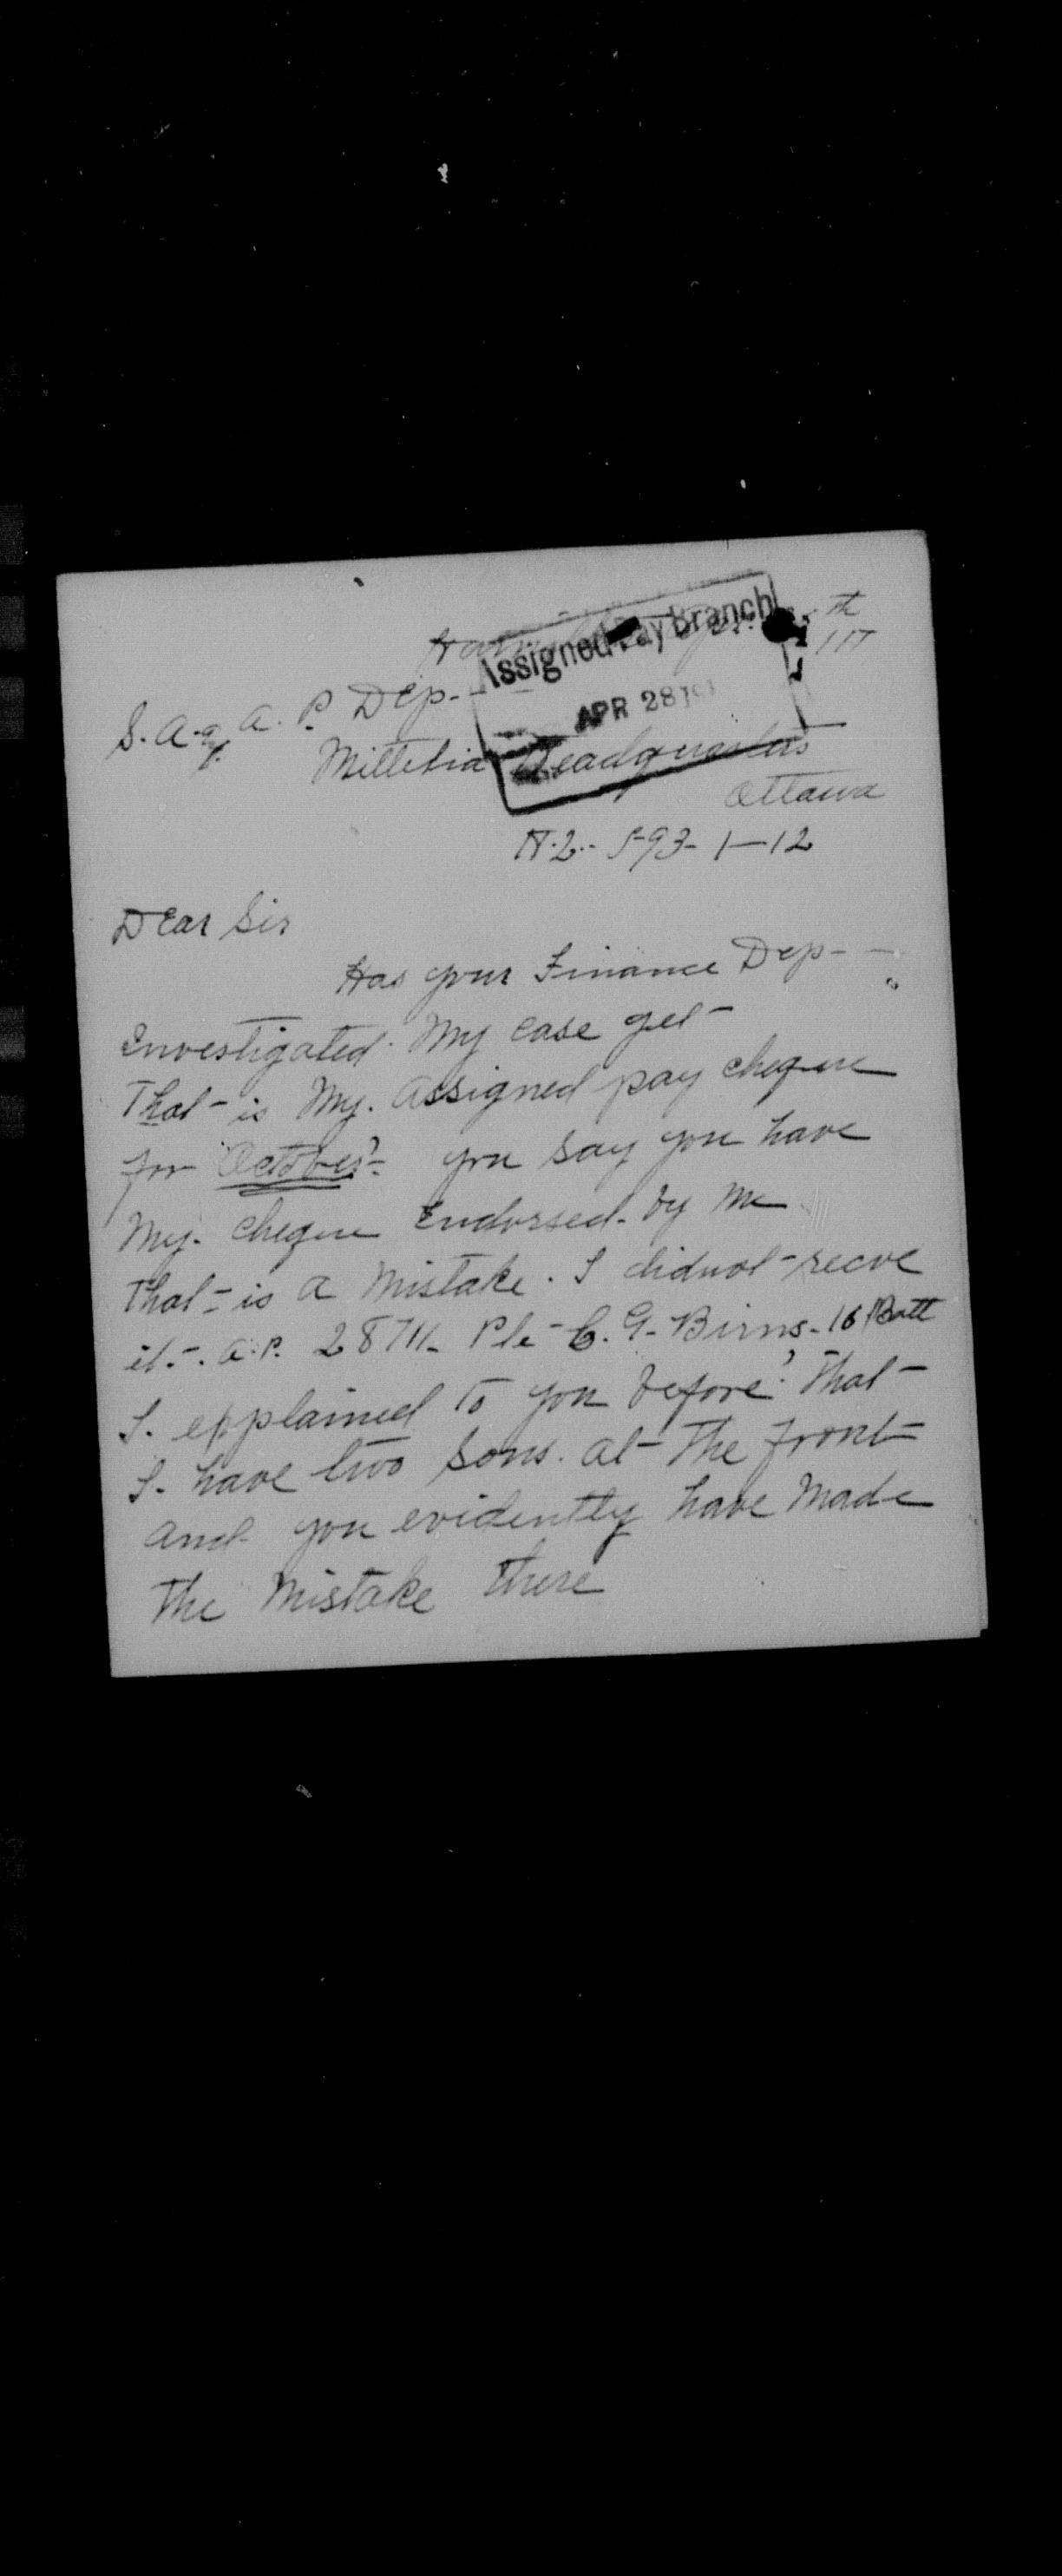 Assigned Pay Branch
APR 28 191
th
S. A. & A. P. Dep-
Millitia Headquarters
Ottawa
593-1-12
Dear Sir
Has your Finance Dep-
Investigated. My case yet-
That- is My. Assigned pay cheque
for "October"- you say you have
My. cheque Endorsed. by Me
That- is a Mistake. I didnot- recve
it.-. A.P. 28711- Pte- C. G. Birns- 16 Batt
I. explained to you before. That-
I- have two sons. at- The front-
and you evidently have Made
The Mistake there